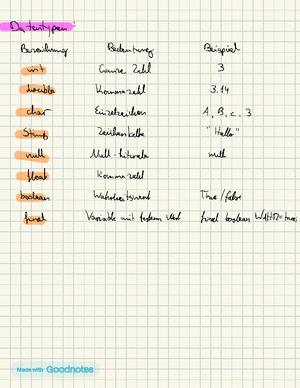 Datentypen:
Bezeichnung Bedeutung Beispiel
int Ganze Zahl 3
double Kommazahl 3.14
char Einzelzeichen A, B, c, 3
String Zeichenkette "Hallo"
null Null-Literale null
float Kommazahl
boolean Wahrheitswert True/false
final Variable mit festem Wert final boolean WAHR=true;
Made with Goodnotes